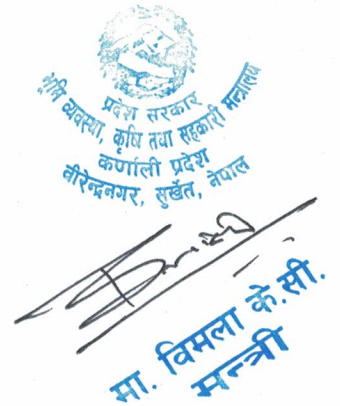 प्रदेश सरकार
भूमि व्यवस्था, कृषि तथा सहकारी मन्त्रालय
कर्णाली प्रदेश
वीरेन्द्रनगर, सुर्खेत, नेपाल
मा. विमला के.सी.
मन्त्री